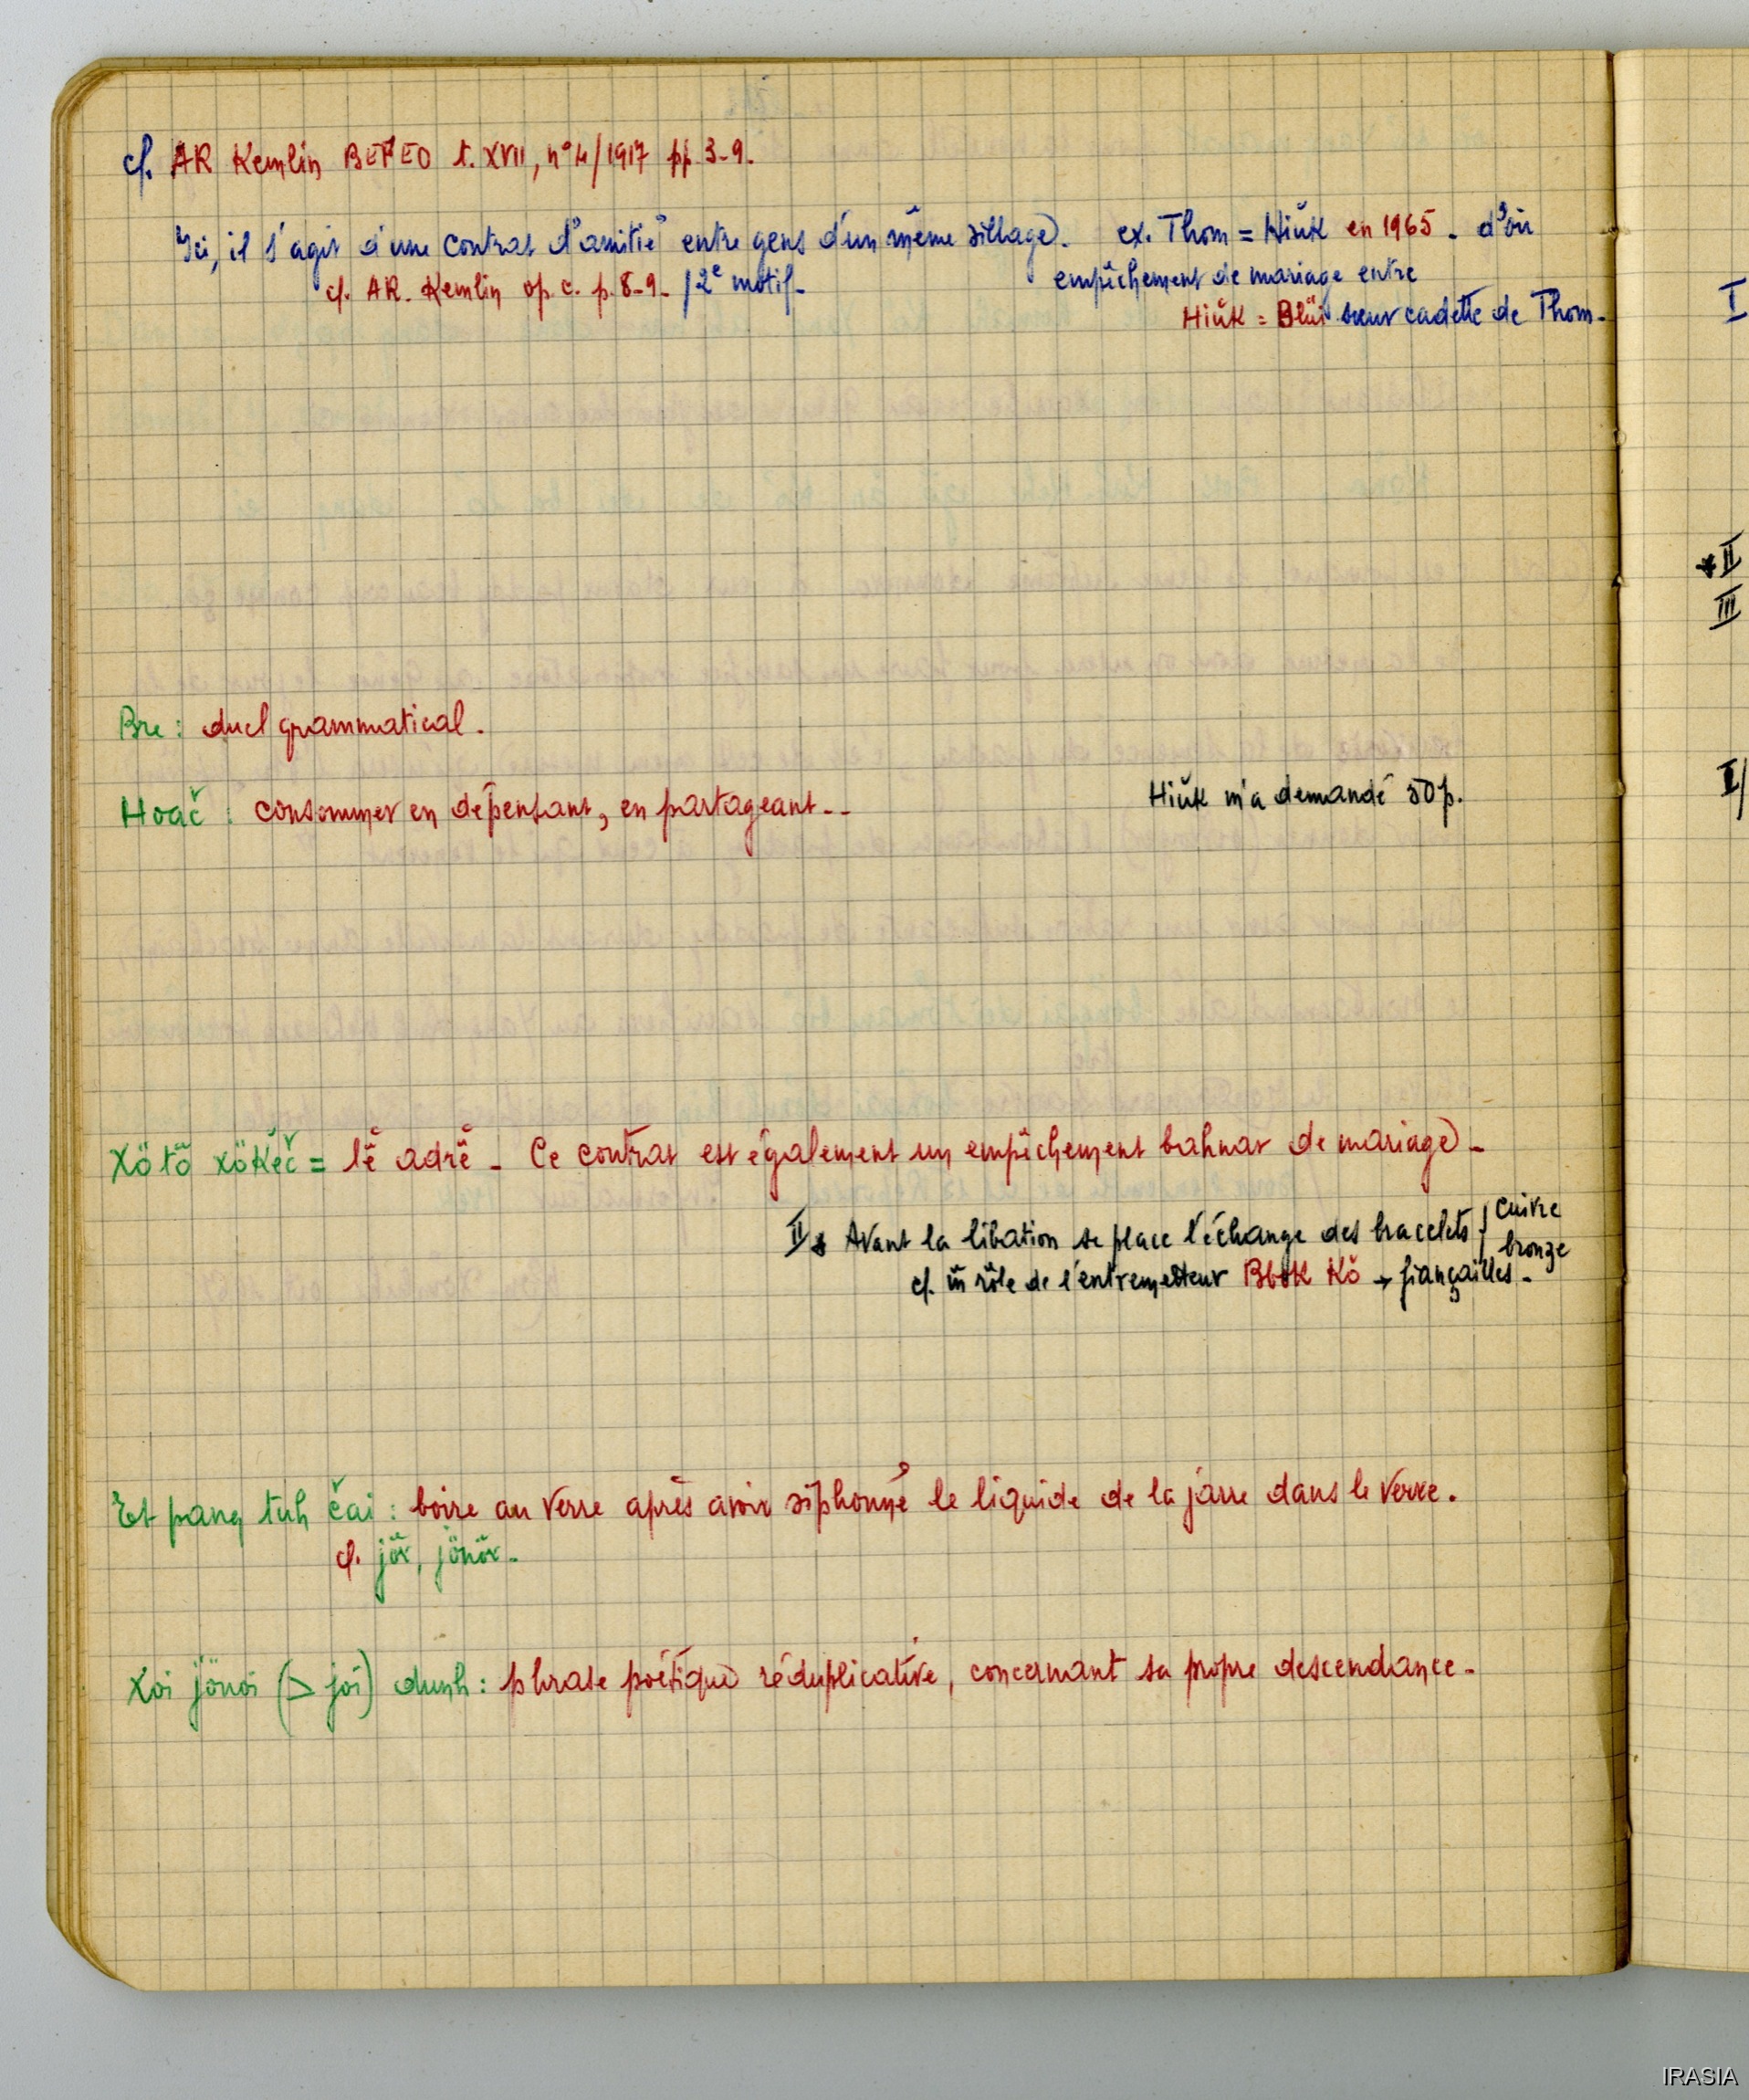 cf. AR Kemlin BEFEO t. XVII, n° 4/1917 pp. 3-9.
Ici, il s'agit d'une contrat d'amitié entre gens d'un même village. ex. Thom = Hiŭk en 1965 - d'où
cf. AR. Kemlin op. c. p. 8-9- /2e motif- empêchement de mariage entre
Hiŭk = Blŭi sœur cadette de Thom-
I
*II
III
Bre : duel grammatical.
Hoač : consommer en dépensant, en partageant-- Hiŭk m'a demandé 50 p.
I/
Xö tŏ xökĕč = lĕ adrĕ - Ce contrat est également un empêchement bahnar de mariage -
II* Avant la libation se place l'échange des bracelets } cuivre
bronze
cf. rôle de l'entremetteur Bbok Kŏ → fiançailles -
Et pang tuh čai : boire au verre après avoir siphonné le liquide de la jarre dans le verre.
cf. jŏr, jönŏr-
Xoi jönoi (> joi) dunh : phrase poétique réduplicative, concernant sa propre descendance-
IRASIA